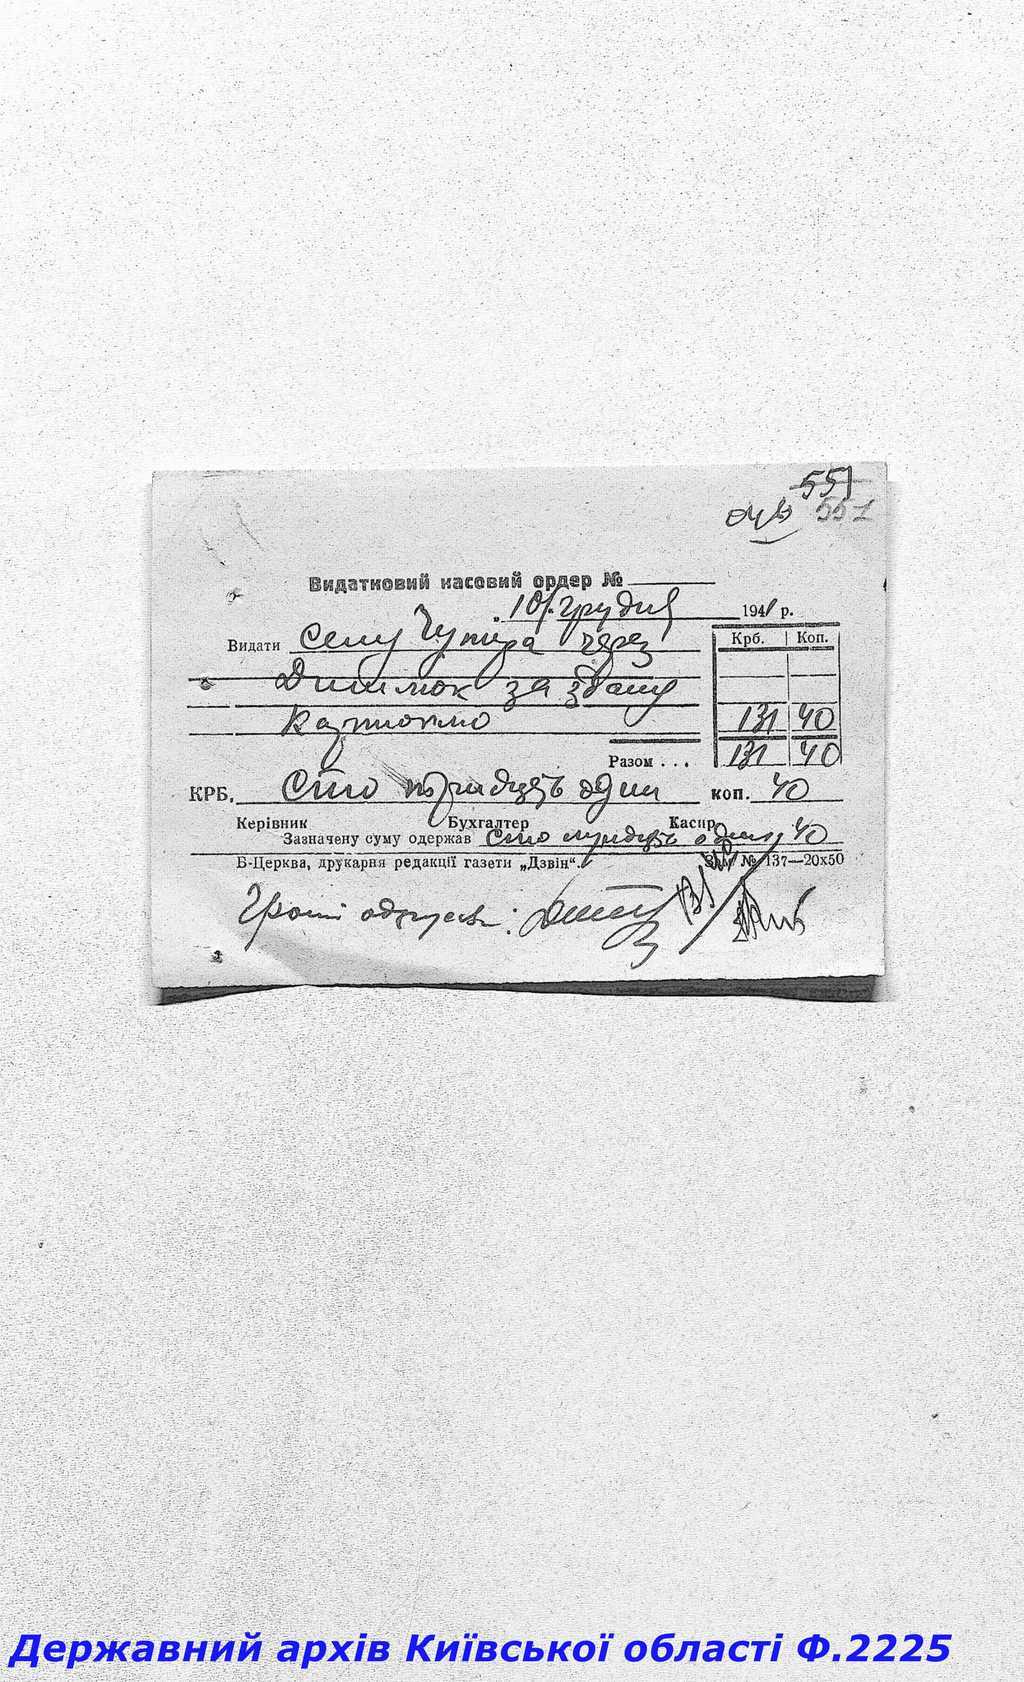 551
551
Видатковий касовий ордер №
10/ грудня 1941 р.
Видати селу Чупира через
Крб. Коп.
за здану
картоплю 131 40
Разом . . . 131 40
КРБ. Сто тридцять один коп. 40
Керівник Бухгалтер Касир
Зазначену суму одержав Сто тридцять один 40
Б-Церква, друкарня редакції газети „Дзвін“. Зам. № 137—20х50
Гроші одержав:
Державний архів Київської області Ф.2225